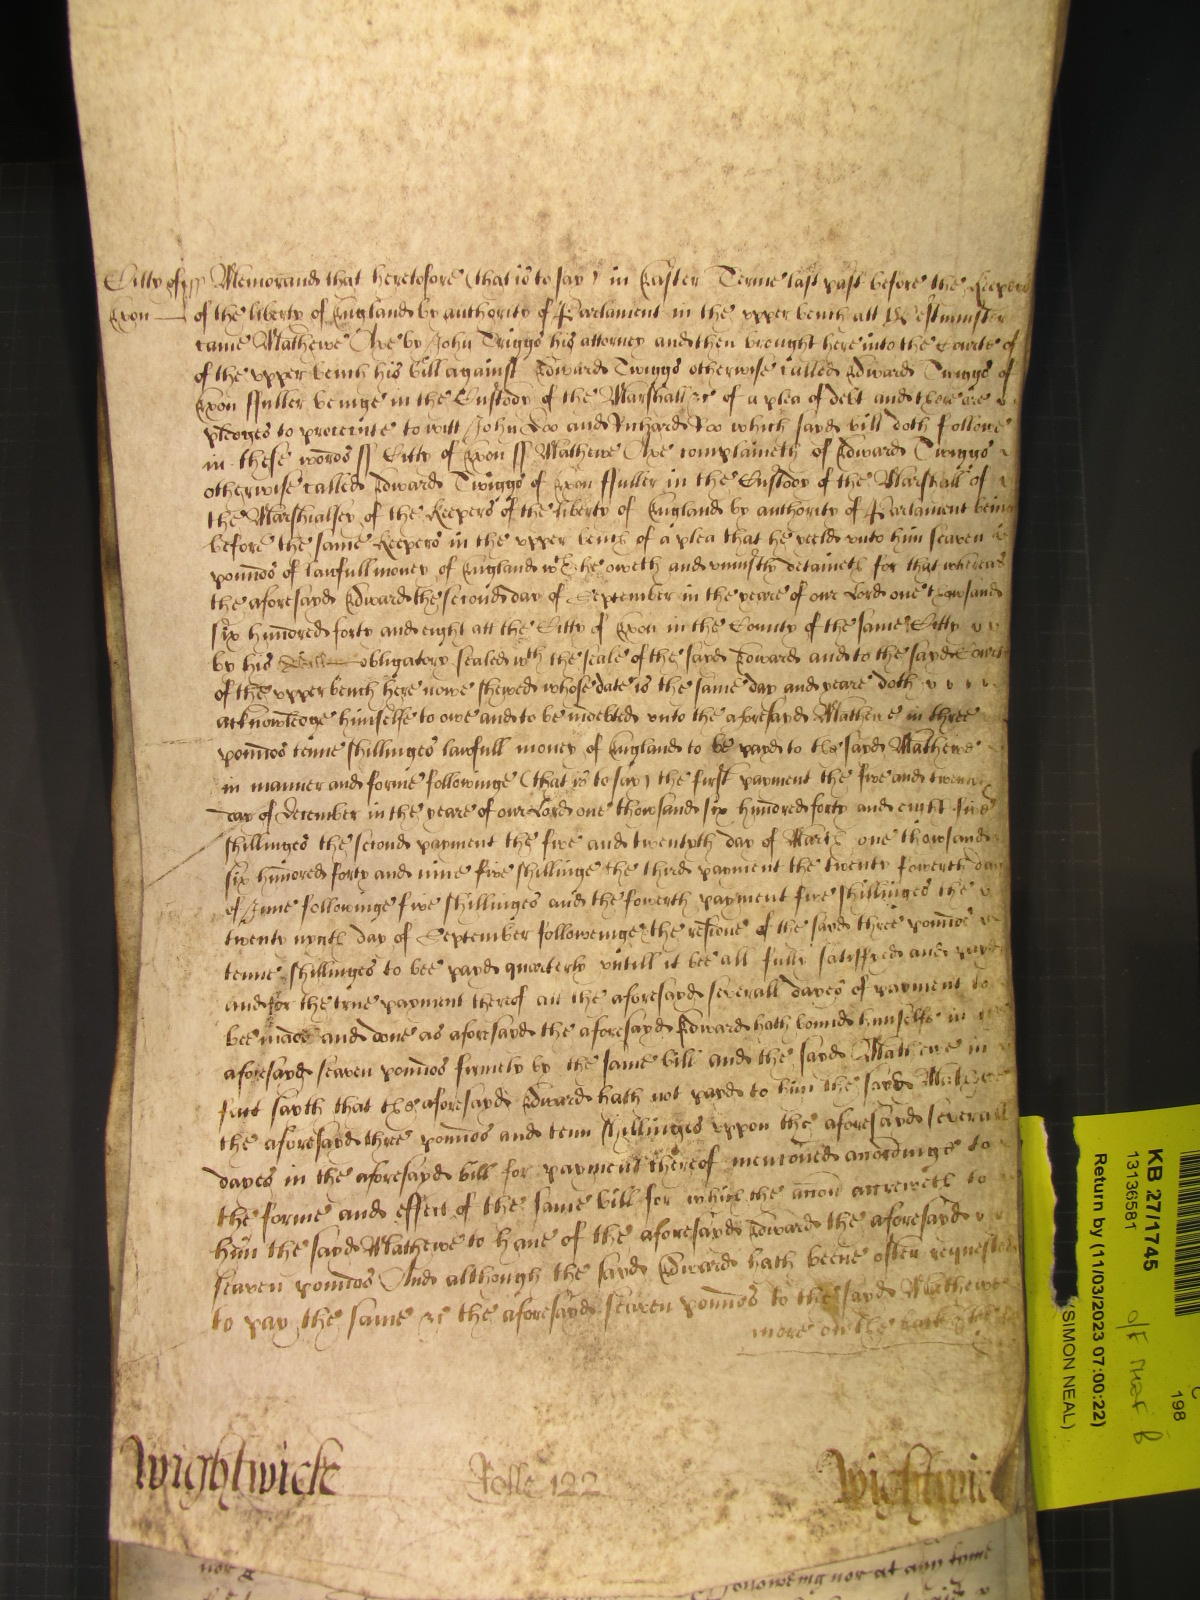 Citty of ss Memorand that heretofore (that is to say) in Easter Terme last past before the Keepers
Exon of the liberty of England by authority of Parliament in the upper bench att Westminster
came Mathewe Axe by John Triggs his attorney and then brought here into the Courte of
of the upper bench his bill against Edward Twiggs otherwise called Edward Twiggs of
Exon ffuller beinge in the Custody of the Marshall &c of a plea of debt and there are
pledges to prosecute to witt John Doo and Richard Roo which sayd bill doth followe
in these words ss Citty of Exon ss Mathewe Axe complaineth of Edward Twiggs
otherwise called Edward Twiggs of Exon ffuller in the Custody of the Marshall of
the Marshialsey of the Keepers of the liberty of England by authority of Parliament being
before the same Keepers in the upper bench of a plea that he yeeld unto him seaven
pounds of lawfull money of England wch he oweth and uniustly detaineth for that whereas
the aforesayd Edward the second day of September in the yeare of our Lord one thowsand
six hundred forty and eight att the Citty of Exon in the County of the same Citty
by his obligatory sealed wth the seale of the sayd Edward and to the sayd Court
of the upper bench here nowe shewed whose date is the same day and yeare doth
acknowledge himselfe to owe and to be indebted unto the aforesayd Mathewe in three
pounds tenne shillinges lawfull money of England to be payd to the sayd Mathewe
in manner and forme followinge (that is to say) the first payment the five and twenty
day of December in the yeare of our Lord one thowsand six hundred forty and eight five
shillinges the second payment the five and twentyth day of March one thowsand
six hundred forty and nine five shillinge the third payment the twenty fowerth day
of June followinge five shillinges and the fowerth payment five shillinges the
twenty nynth day of September followeinge the residue of the sayd three pounds
tenne shillinges to bee payd quarterly untill it bee all fully satisfyed and payd
and for the true payment thereof att the aforesayd severall dayes of payment to
bee made and done as aforesayd the aforesayd Edward hath bound himselfe in
aforesayd seaven pounds firmely by the same bill and the sayd Mathewe in
fact sayth that the aforesayd Edward hath not payd to him the sayd Mathewe
the aforesayd three pounds and tenn shillinges uppon the aforesayd severall
dayes in the aforesayd bill for payment thereof mentioned accordinge to
the forme and effect of the same bill for which the accon accreweth to
him the sayd Mathewe to have of the aforesayd Edward the aforesayd
seaven pounds And although the sayd Edward hath beene often requested
to pay the same &c the aforesayd seaven pounds to the sayd Mathewe
more on the
Wightwick Rolle 122 Wightwic
followeing nor at any tyme
KB 27/1745
13136581
Return by (11/03/2023 07:00:22)
(SIMON NEAL)
198